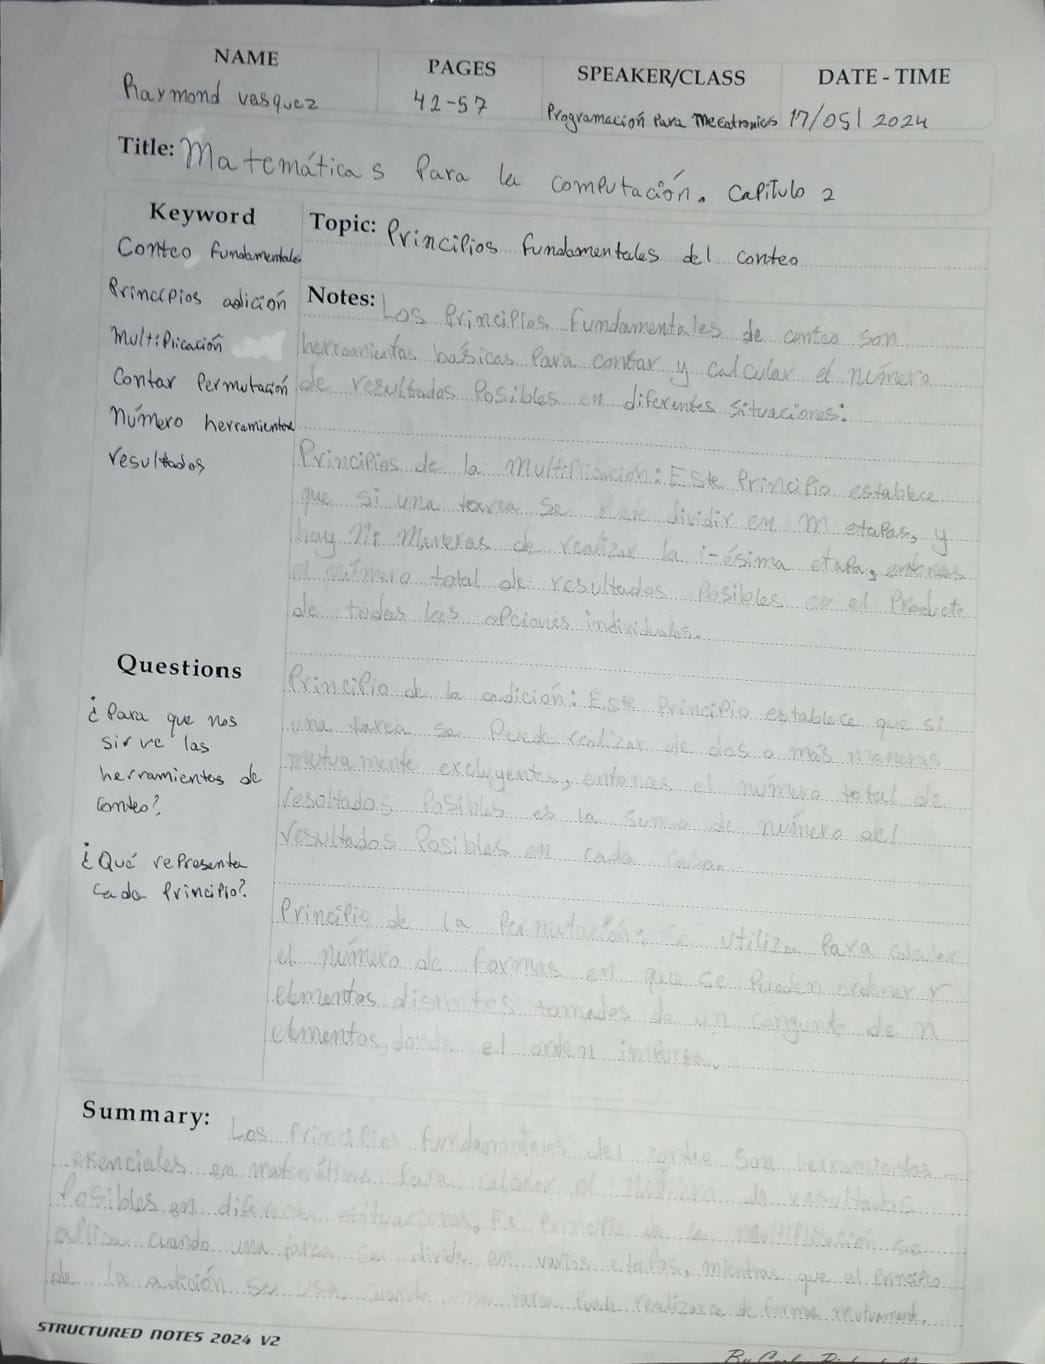 NAME
Raymond vasquez
PAGES
42-57
SPEAKER/CLASS
Programacion Para Mecatronicos
DATE - TIME
17/05/2024
Title: Matemáticas Para la computación. Capitulo 2
Keyword
Conteo fundamentales
Principios adición
Multiplicación
Contar Permutación
número herramientas
resultados
Topic: Principios fundamentales del conteo
Notes: Los Principios fundamentales de conteo son
herramientas básicas Para contar y calcular el número
de resultados Posibles en diferentes situaciones:
Principios de la multiplicacion: Este Principio establece
que si una tarea se dividir en m etapas, y
hay ni maneras de realizar la i-ésima etapa, entonces
el número total de resultados Posibles es el Producto
de todas las opciones individuales.
Principio de la adición: Este Principio establece que si
una tarea se Puede realizar de dos o más maneras
mutuamente excluyentes, entonces el número total de
resultados Posibles es la suma de número del
resultados Posibles en cada caso.
Principio de la Permutación: se utiliza Para calcular
el número de formas en que se Pueden ordenar r
elementos distintos tomados de un conjunto de n
elementos, donde el orden importa.
Questions
¿Para que nos
sirve las
herramientas de
conteo?
¿Qué representa
cada Principio?
Summary: Los Principios fundamentales del conteo son herramientas
esenciales en matemáticas Para calcular el número de resultados
Posibles en diferentes situaciones. El Principio de la multiplicación se
aplica cuando una tarea se divide en varias etapas, mientras que el Principio
de la adición se usa cuando una tarea Puede realizarse de formas mutuamente.
STRUCTURED NOTES 2024 V2
By